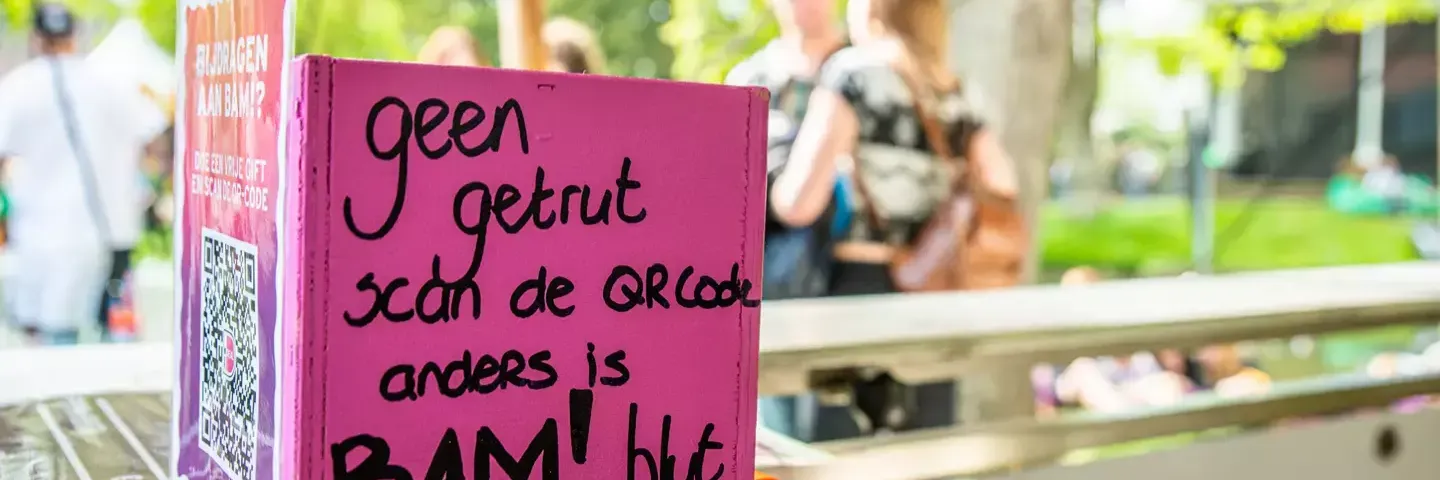 BIJDRAGEN
AAN BAM!?
DOE EEN VRIJE GIFT
EN SCAN DE QR-CODE
geen
getrut
scan de QR Code
anders is
BAM! blut